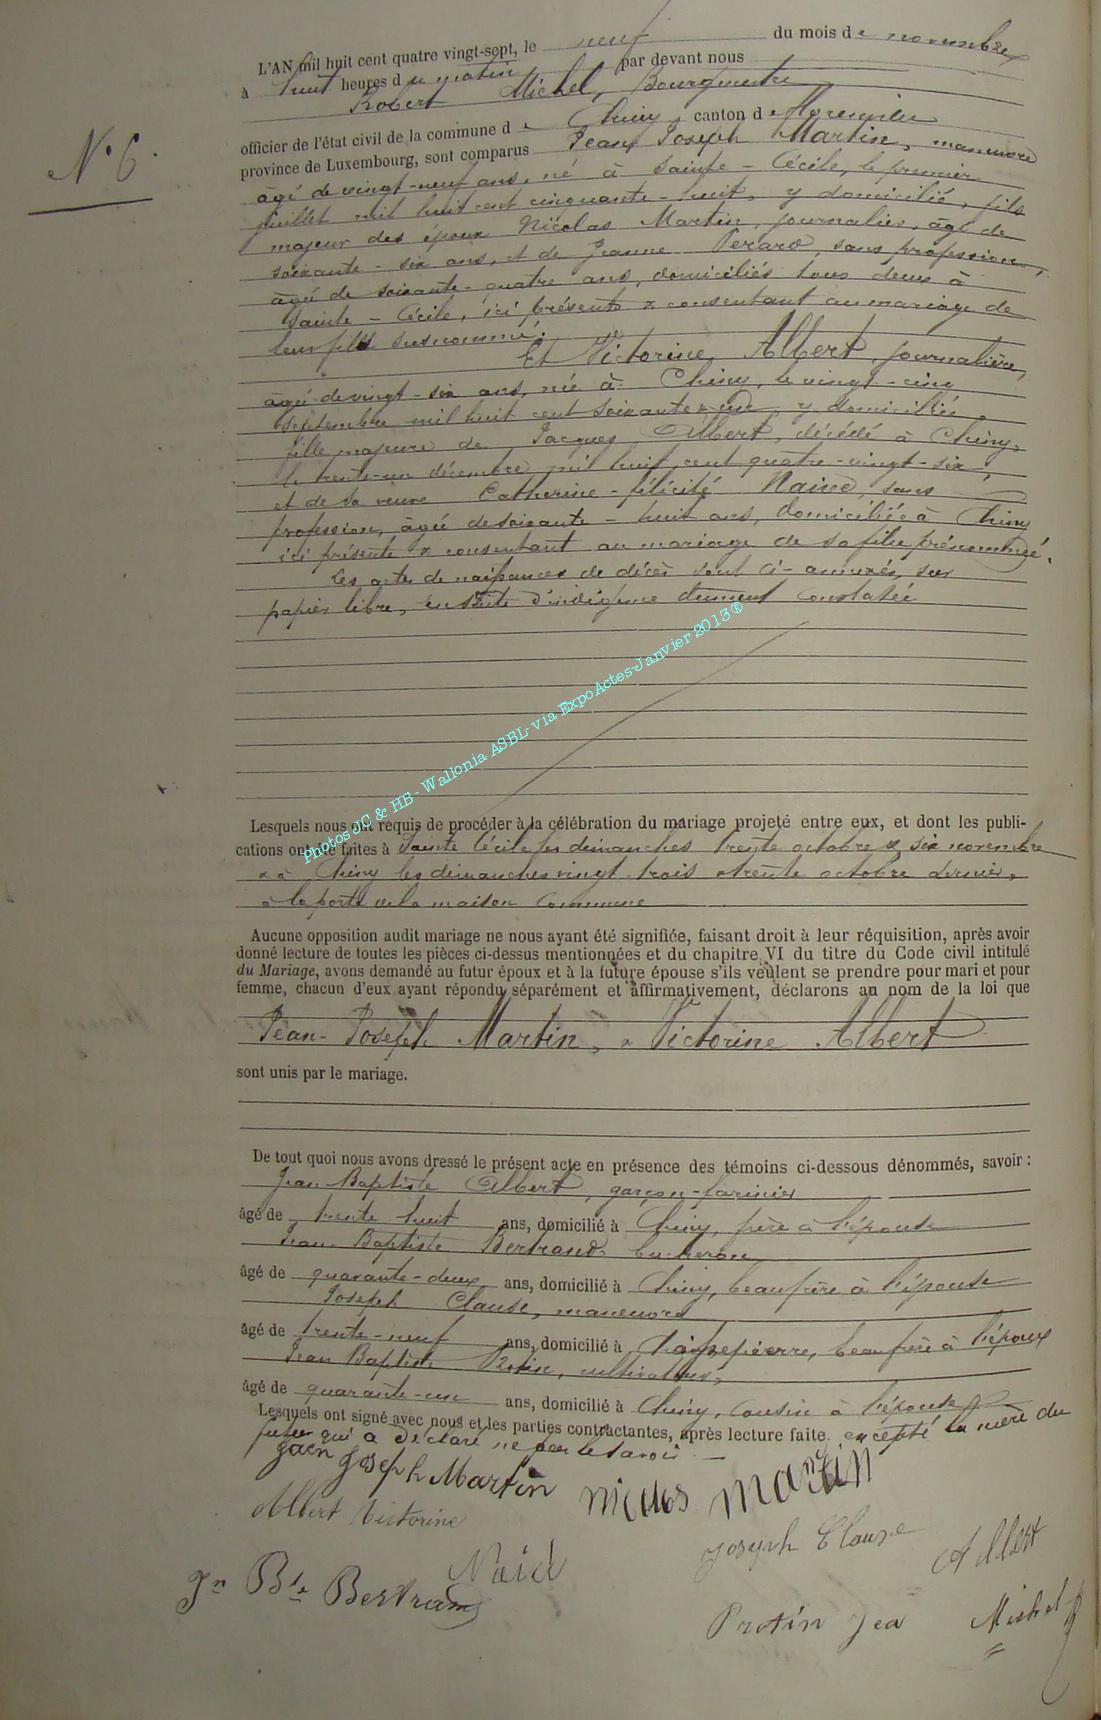 N° 6.
L'AN mil huit cent quatre vingt-sept, le neuf du mois de novembre
à huit heures du matin par devant nous
Robert Michel, Bourgmestre
officier de l'état civil de la commune de Chiny, canton de Florenville
province de Luxembourg, sont comparus Jean Joseph Martin, manœuvre
âgé de vingt-neuf ans, né à Sainte-Cécile, le premier
juillet mil huit cent cinquante-huit, y domicilié, fils
majeur des époux Nicolas Martin, journalier, âgé de
soixante-six ans, et de Jeanne Perard, sans profession,
âgée de soixante-quatre ans, domiciliés tous deux à
Sainte-Cécile, ici présents & consentant au mariage de
leur fils susnommé.
Et Victorine Albert, journalière,
âgée de vingt-six ans, née à Chiny, le vingt-cinq
septembre mil huit cent soixante & un, y domiciliée,
fille majeure de Jacques Albert, décédé à Chiny,
le trente-un décembre mil huit cent quatre-vingt-six,
et de sa veuve Catherine-félicité Naisé, sans
profession, âgée de soixante-huit ans, domiciliée à Chiny
ici présente & consentant au mariage de sa fille prénommée.
Les actes de naissances de décès sont ci-annexés, sur
papier libre, ensuite d'indigence dument constatée
Photos JC & HB - Wallonia ASBL- via ExpoActes-Janvier 2013®
Lesquels nous ont requis de procéder à la célébration du mariage projeté entre eux, et dont les publi-
cations ont été faites à Sainte Cécile les dimanches trente octobre & six novembre
& à Chiny les dimanches vingt-trois & trente octobre dernier,
à la porte de la maison commune
Aucune opposition audit mariage ne nous ayant été signifiée, faisant droit à leur réquisition, après avoir
donné lecture de toutes les pièces ci-dessus mentionnées et du chapitre VI du titre du Code civil intitulé
du Mariage, avons demandé au futur époux et à la future épouse s'ils veulent se prendre pour mari et pour
femme, chacun d'eux ayant répondu séparément et affirmativement, déclarons au nom de la loi que
Jean-Joseph Martin, & Victorine Albert
sont unis par le mariage.
De tout quoi nous avons dressé le présent acte en présence des témoins ci-dessous dénommés, savoir :
Jean Baptiste Albert, garçon-farinier
âgé de trente huit ans, domicilié à Chiny, frère à l'épouse
Jean-Baptiste Bertrand bucheron
âgé de quarante-deux ans, domicilié à Chiny, beaufrère à l'épouse
Joseph Clause, manœuvre
âgé de trente-neuf ans, domicilié à Chassepierre, beaufrère à l'époux
Jean Baptiste Protin, cultivateur,
âgé de quarante-un ans, domicilié à Chiny, cousin à l'épouse
Lesquels ont signé avec nous et les parties contractantes, après lecture faite, excepté la mère du
futur qui a déclaré ne pas le savoir.
Jaen Joseph Martin
nicolas martin
Albert Victorine
Joseph Clause
Albert
Naid
Jn Bte Bertrand
Protin Jea
Michel